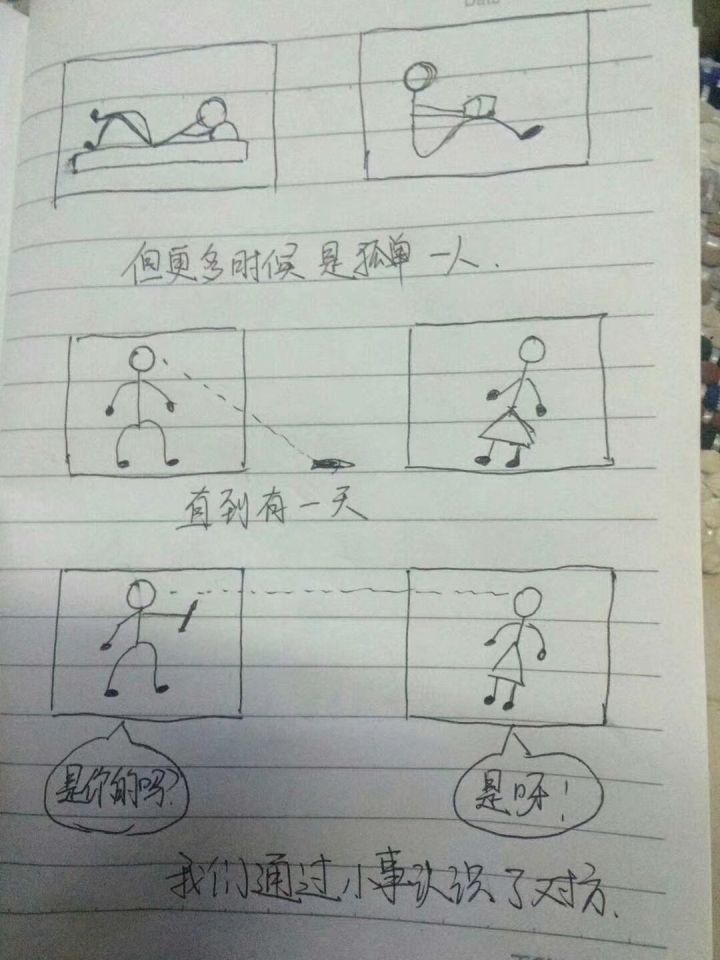 Date
但更多时候是孤单一人.
直到有一天
是你的吗?
是呀!
我们通过小事认识了对方.